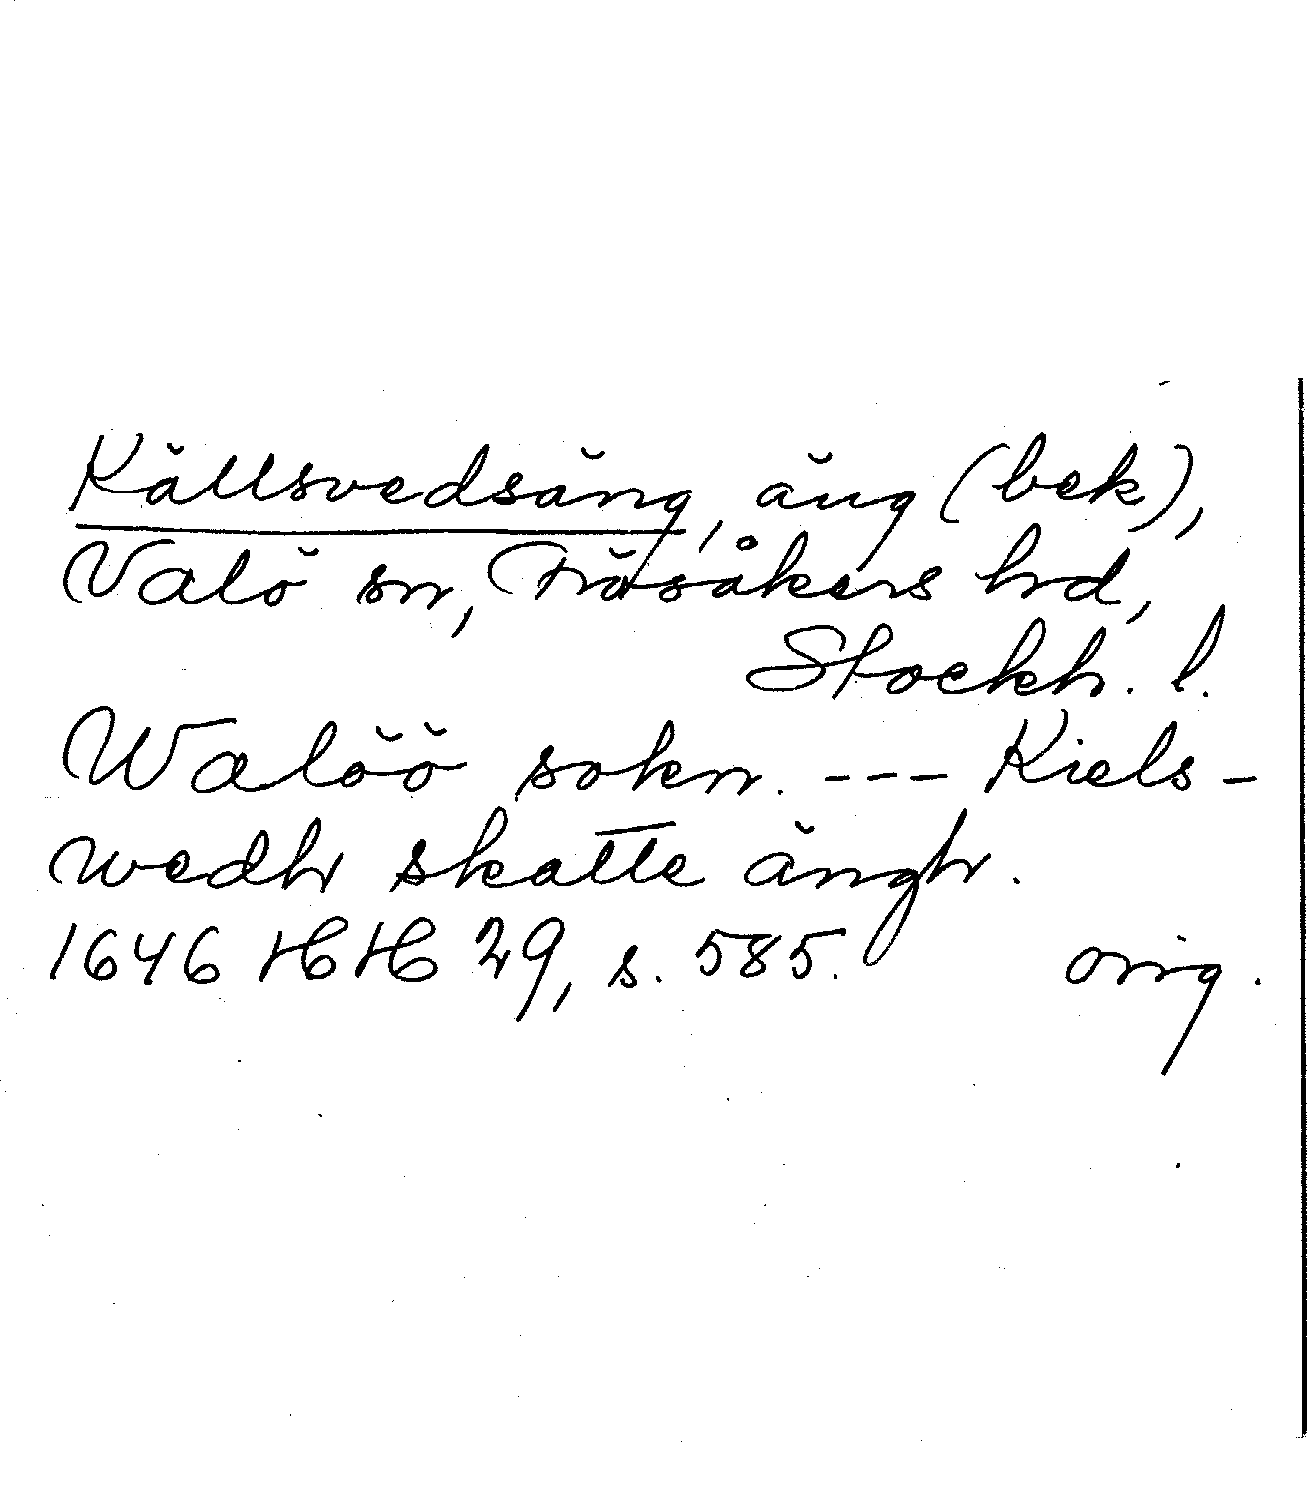 Källsvedsäng, äng (bek),
Valö sn, Frösåkers hrd,
Stockh. l.
Walöö sokn. --- Kiels-
wedh skatte ängh.
1646 HH 29, s. 585. orig.